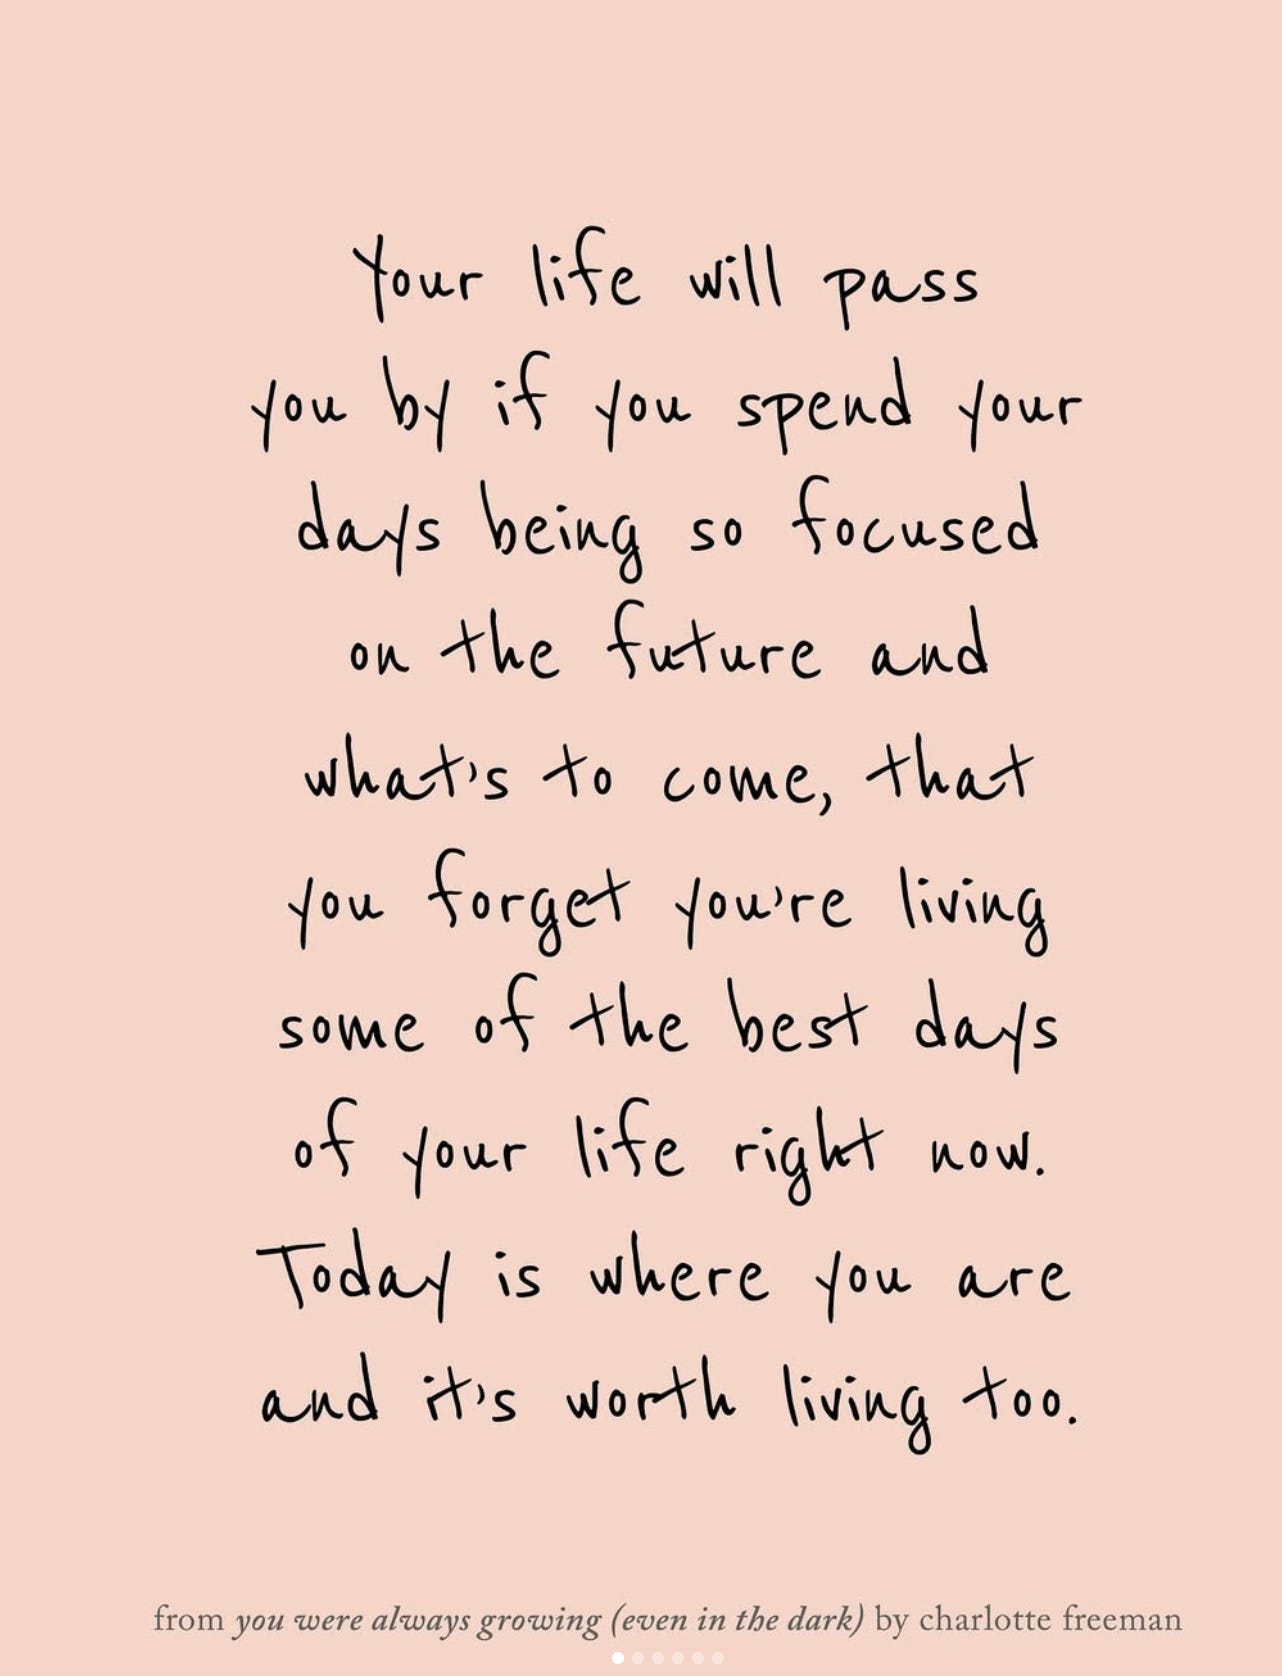 Your life will pass
you by if you spend your
days being so focused
on the future and
what's to come, that
you forget you're living
some of the best days
of your life right now.
Today is where you are
and it's worth living too.
from you were always growing (even in the dark) by charlotte freeman